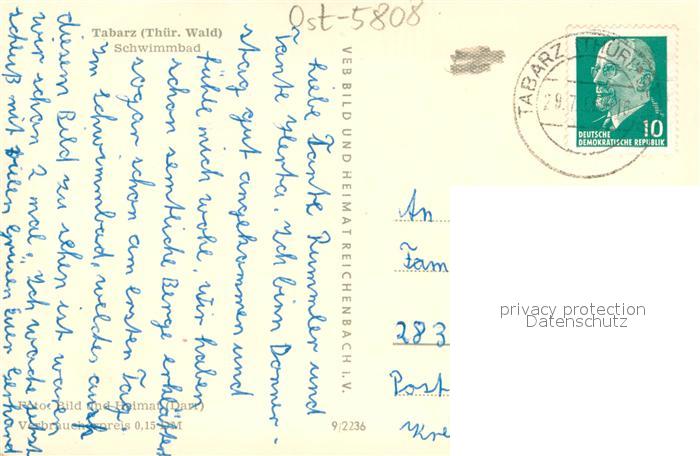 Ost-5808
Tabarz (Thür. Wald)
Schwimmbad
Liebe Tante Rummler und
Tante Herta. Ich binn Donner-
stag gut angekommen und
fühle mich wohl. Wir haben
schon semtliche Berge erklättert
sogar schon am ersten Tag.
Im schwimmbad, welches auch
diesem Bild zu sehen ist waren
wir schon 2 mal. Ich mache jetzt
schluß mit vielen grüsen euer Gerhard
Foto: Bild und Heimat (Darr)
Verbraucherpreis 0,15 DM
VEB BILD UND HEIMAT REICHENBACH I. V.
9/2236
TABARZ (THÜR
29.7
10
DEUTSCHE
DEMOKRATISCHE REPUBLIK
An
Fam
283
Post
Kre
privacy protection
Datenschutz